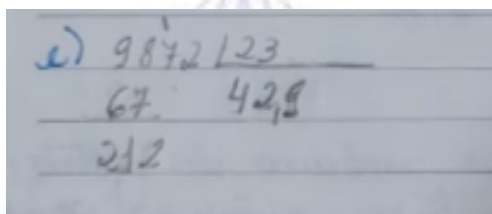 e) 9872 | 23
67 42,9
212